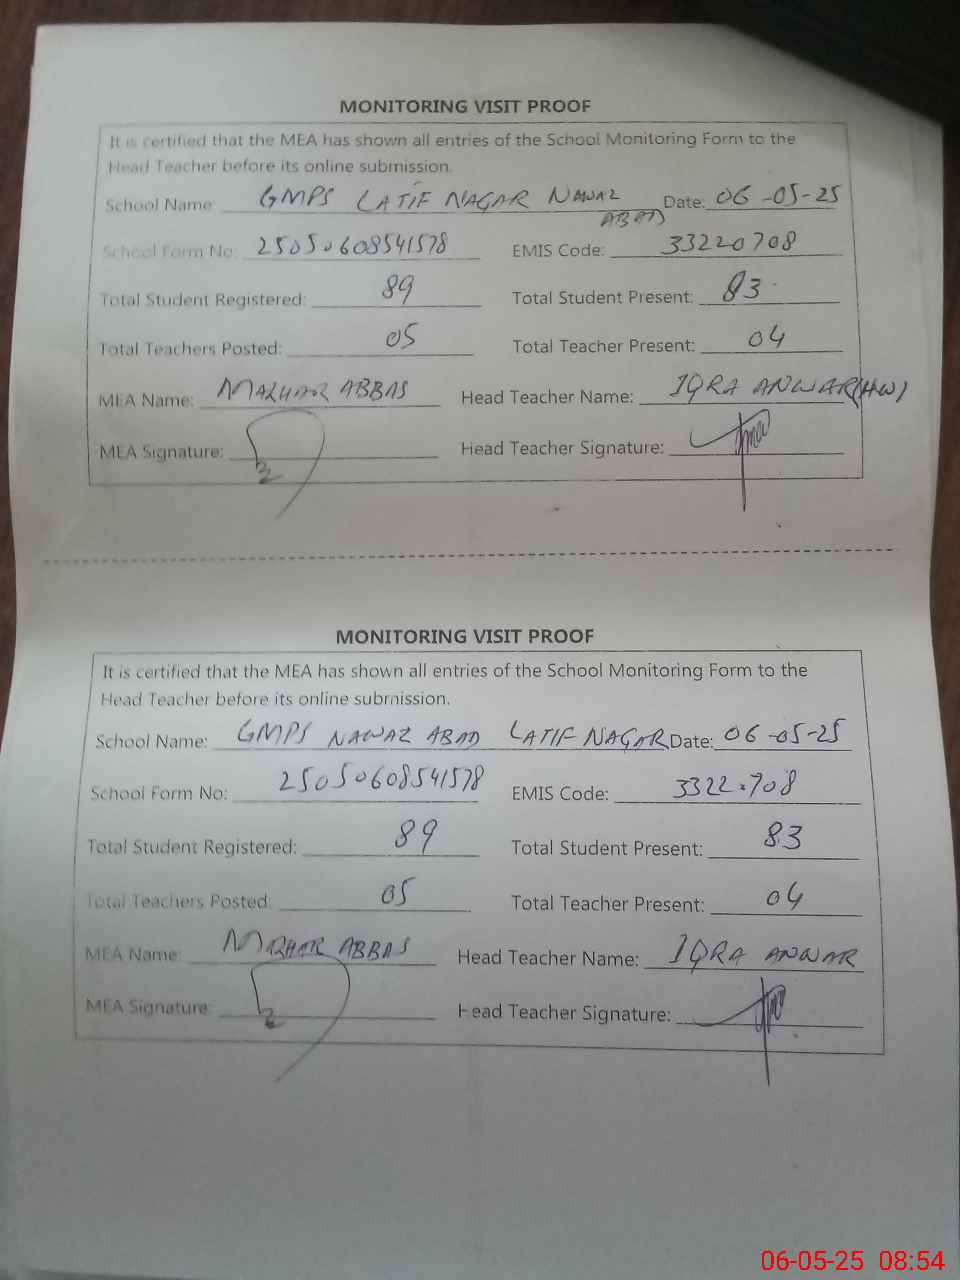 MONITORING VISIT PROOF
It is certified that the MEA has shown all entries of the School Monitoring Form to the
Head Teacher before its online submission.
School Name: GMPS LATIF NAGAR NAWAZ ABAD Date: 06-05-25
School Form No: 25050608541578 EMIS Code: 33220708
Total Student Registered: 89 Total Student Present: 83
Total Teachers Posted: 05 Total Teacher Present: 04
MEA Name: MAZHAR ABBAS Head Teacher Name: IQRA ANWAR(HW)
MEA Signature: Head Teacher Signature:
MONITORING VISIT PROOF
It is certified that the MEA has shown all entries of the School Monitoring Form to the
Head Teacher before its online submission.
School Name: GMPS NAWAZ ABAD LATIF NAGAR Date: 06-05-25
School Form No: 25050608541578 EMIS Code: 33220708
Total Student Registered: 89 Total Student Present: 83
Total Teachers Posted: 05 Total Teacher Present: 04
MEA Name: MAZHAR ABBAS Head Teacher Name: IQRA ANWAR
MEA Signature: Head Teacher Signature:
06-05-25 08:54